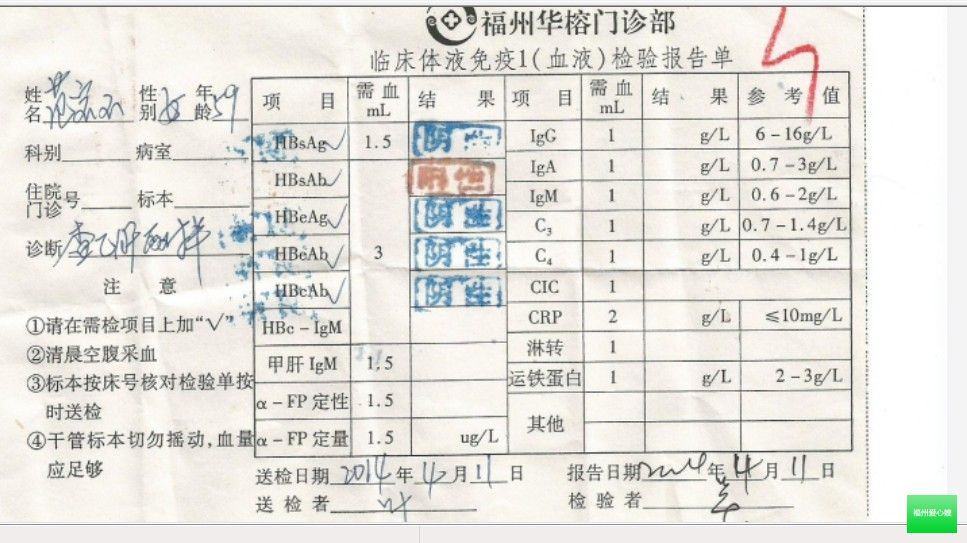 福州华榕门诊部
临床体液免疫1(血液)检验报告单
姓名 性别 女 年龄 59
科别 病室
住院门诊号 标本
诊断 查乙肝两对半
注 意
①请在需检项目上加“√”
②清晨空腹采血
③标本按床号核对检验单按时送检
④干管标本切勿摇动,血量应足够
项 目 需血mL 结 果 项 目 需血mL 结 果 参 考 值
HBsAg√ 1.5 阴性 IgG 1 g/L 6-16g/L
HBsAb√ 阳性 IgA 1 g/L 0.7-3g/L
IgM 1 g/L 0.6-2g/L
HBeAg√ 阴性 C₃ 1 g/L 0.7-1.4g/L
HBeAb√ 3 阴性 C₄ 1 g/L 0.4-1g/L
HBcAb√ 阴性 CIC 1
HBc-IgM CRP 2 g/L ≤10mg/L
甲肝IgM 1.5 淋转 1
运铁蛋白 1 g/L 2-3g/L
α-FP定性 1.5 其他
α-FP定量 1.5 ug/L
送检日期 2014年4月11日 报告日期 2014年4月11日
送检者 叶 检验者
福州爱心嫂